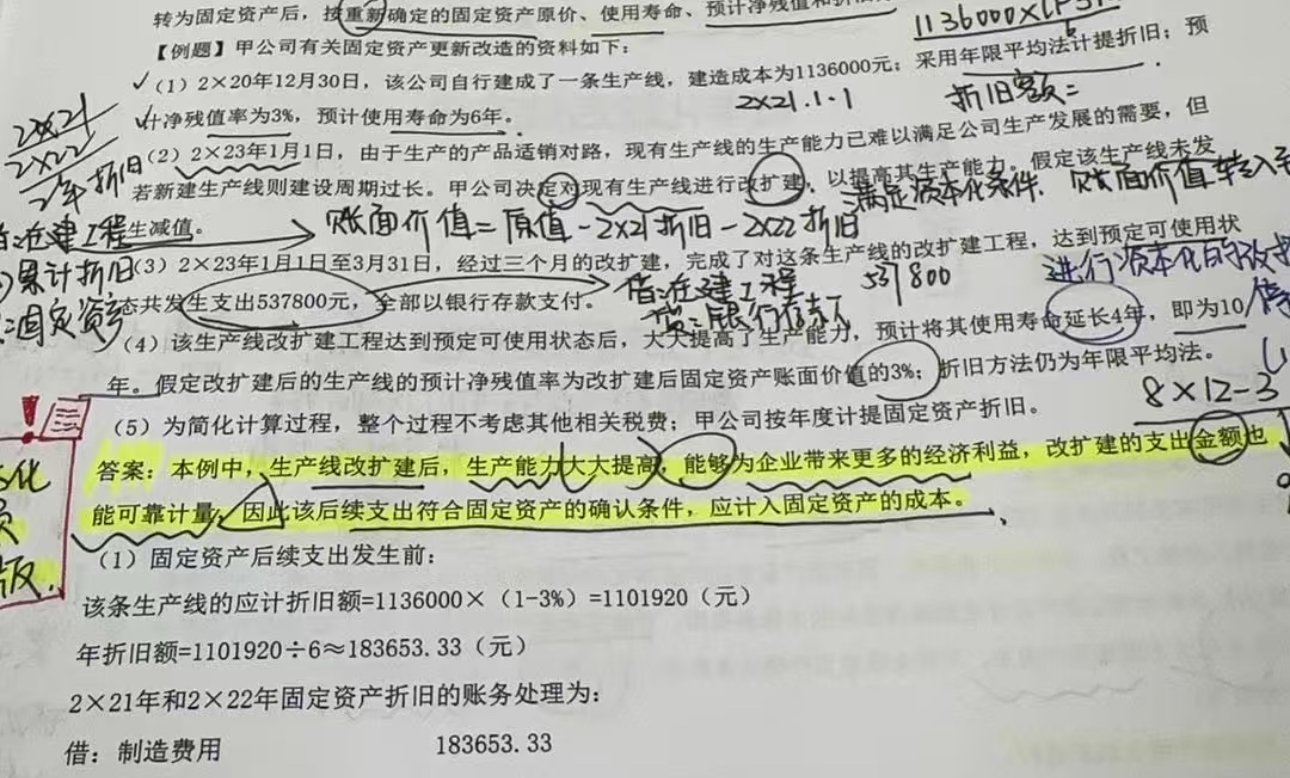 转为固定资产后，按重新确定的固定资产原价、使用寿命、预计净残值和折旧
1136000×(1-3%
【例题】甲公司有关固定资产更新改造的资料如下：
6
✓（1）2×20年12月30日，该公司自行建成了一条生产线，建造成本为1136000元；采用年限平均法计提折旧；预
2×21.1.1
折旧额=
计净残值率为3%，预计使用寿命为6年。
2×21
2×22
2年折旧
（2）2×23年1月1日，由于生产的产品适销对路，现有生产线的生产能力已难以满足公司生产发展的需要，但
若新建生产线则建设周期过长。甲公司决定对现有生产线进行改扩建，以提高其生产能力。假定该生产线未发
满足资本化条件. 账面价值转入
生减值。
账面价值=原值-2×21折旧-2×22折旧
借:在建工程
累计折旧
:固定资产
（3）2×23年1月1日至3月31日，经过三个月的改扩建，完成了对这条生产线的改扩建工程，达到预定可使用状
进行资本化的改扩
态共发生支出537800元，全部以银行存款支付。
借:在建工程 537800
贷:银行存款
（4）该生产线改扩建工程达到预定可使用状态后，大大提高了生产能力，预计将其使用寿命延长4年，即为10
年。假定改扩建后的生产线的预计净残值率为改扩建后固定资产账面价值的3%；折旧方法仍为年限平均法。
8×12-3
（5）为简化计算过程，整个过程不考虑其他相关税费；甲公司按年度计提固定资产折旧。
答案：本例中，生产线改扩建后，生产能力大大提高，能够为企业带来更多的经济利益，改扩建的支出金额也
能可靠计量，因此该后续支出符合固定资产的确认条件，应计入固定资产的成本。
（1）固定资产后续支出发生前：
该条生产线的应计折旧额=1136000×（1-3%）=1101920（元）
年折旧额=1101920÷6≈183653.33（元）
2×21年和2×22年固定资产折旧的账务处理为：
借：制造费用 183653.33